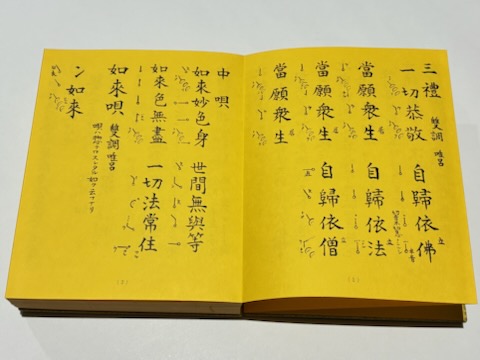 三禮 雙調 唯呂
一切恭敬 自歸依佛
當願衆生 自歸依法
當願衆生 自歸依僧
當願衆生
中唄
如來妙色身 世間無與等
如來色無盡 一切法常住
如來唄 雙調 唯呂
ン如來